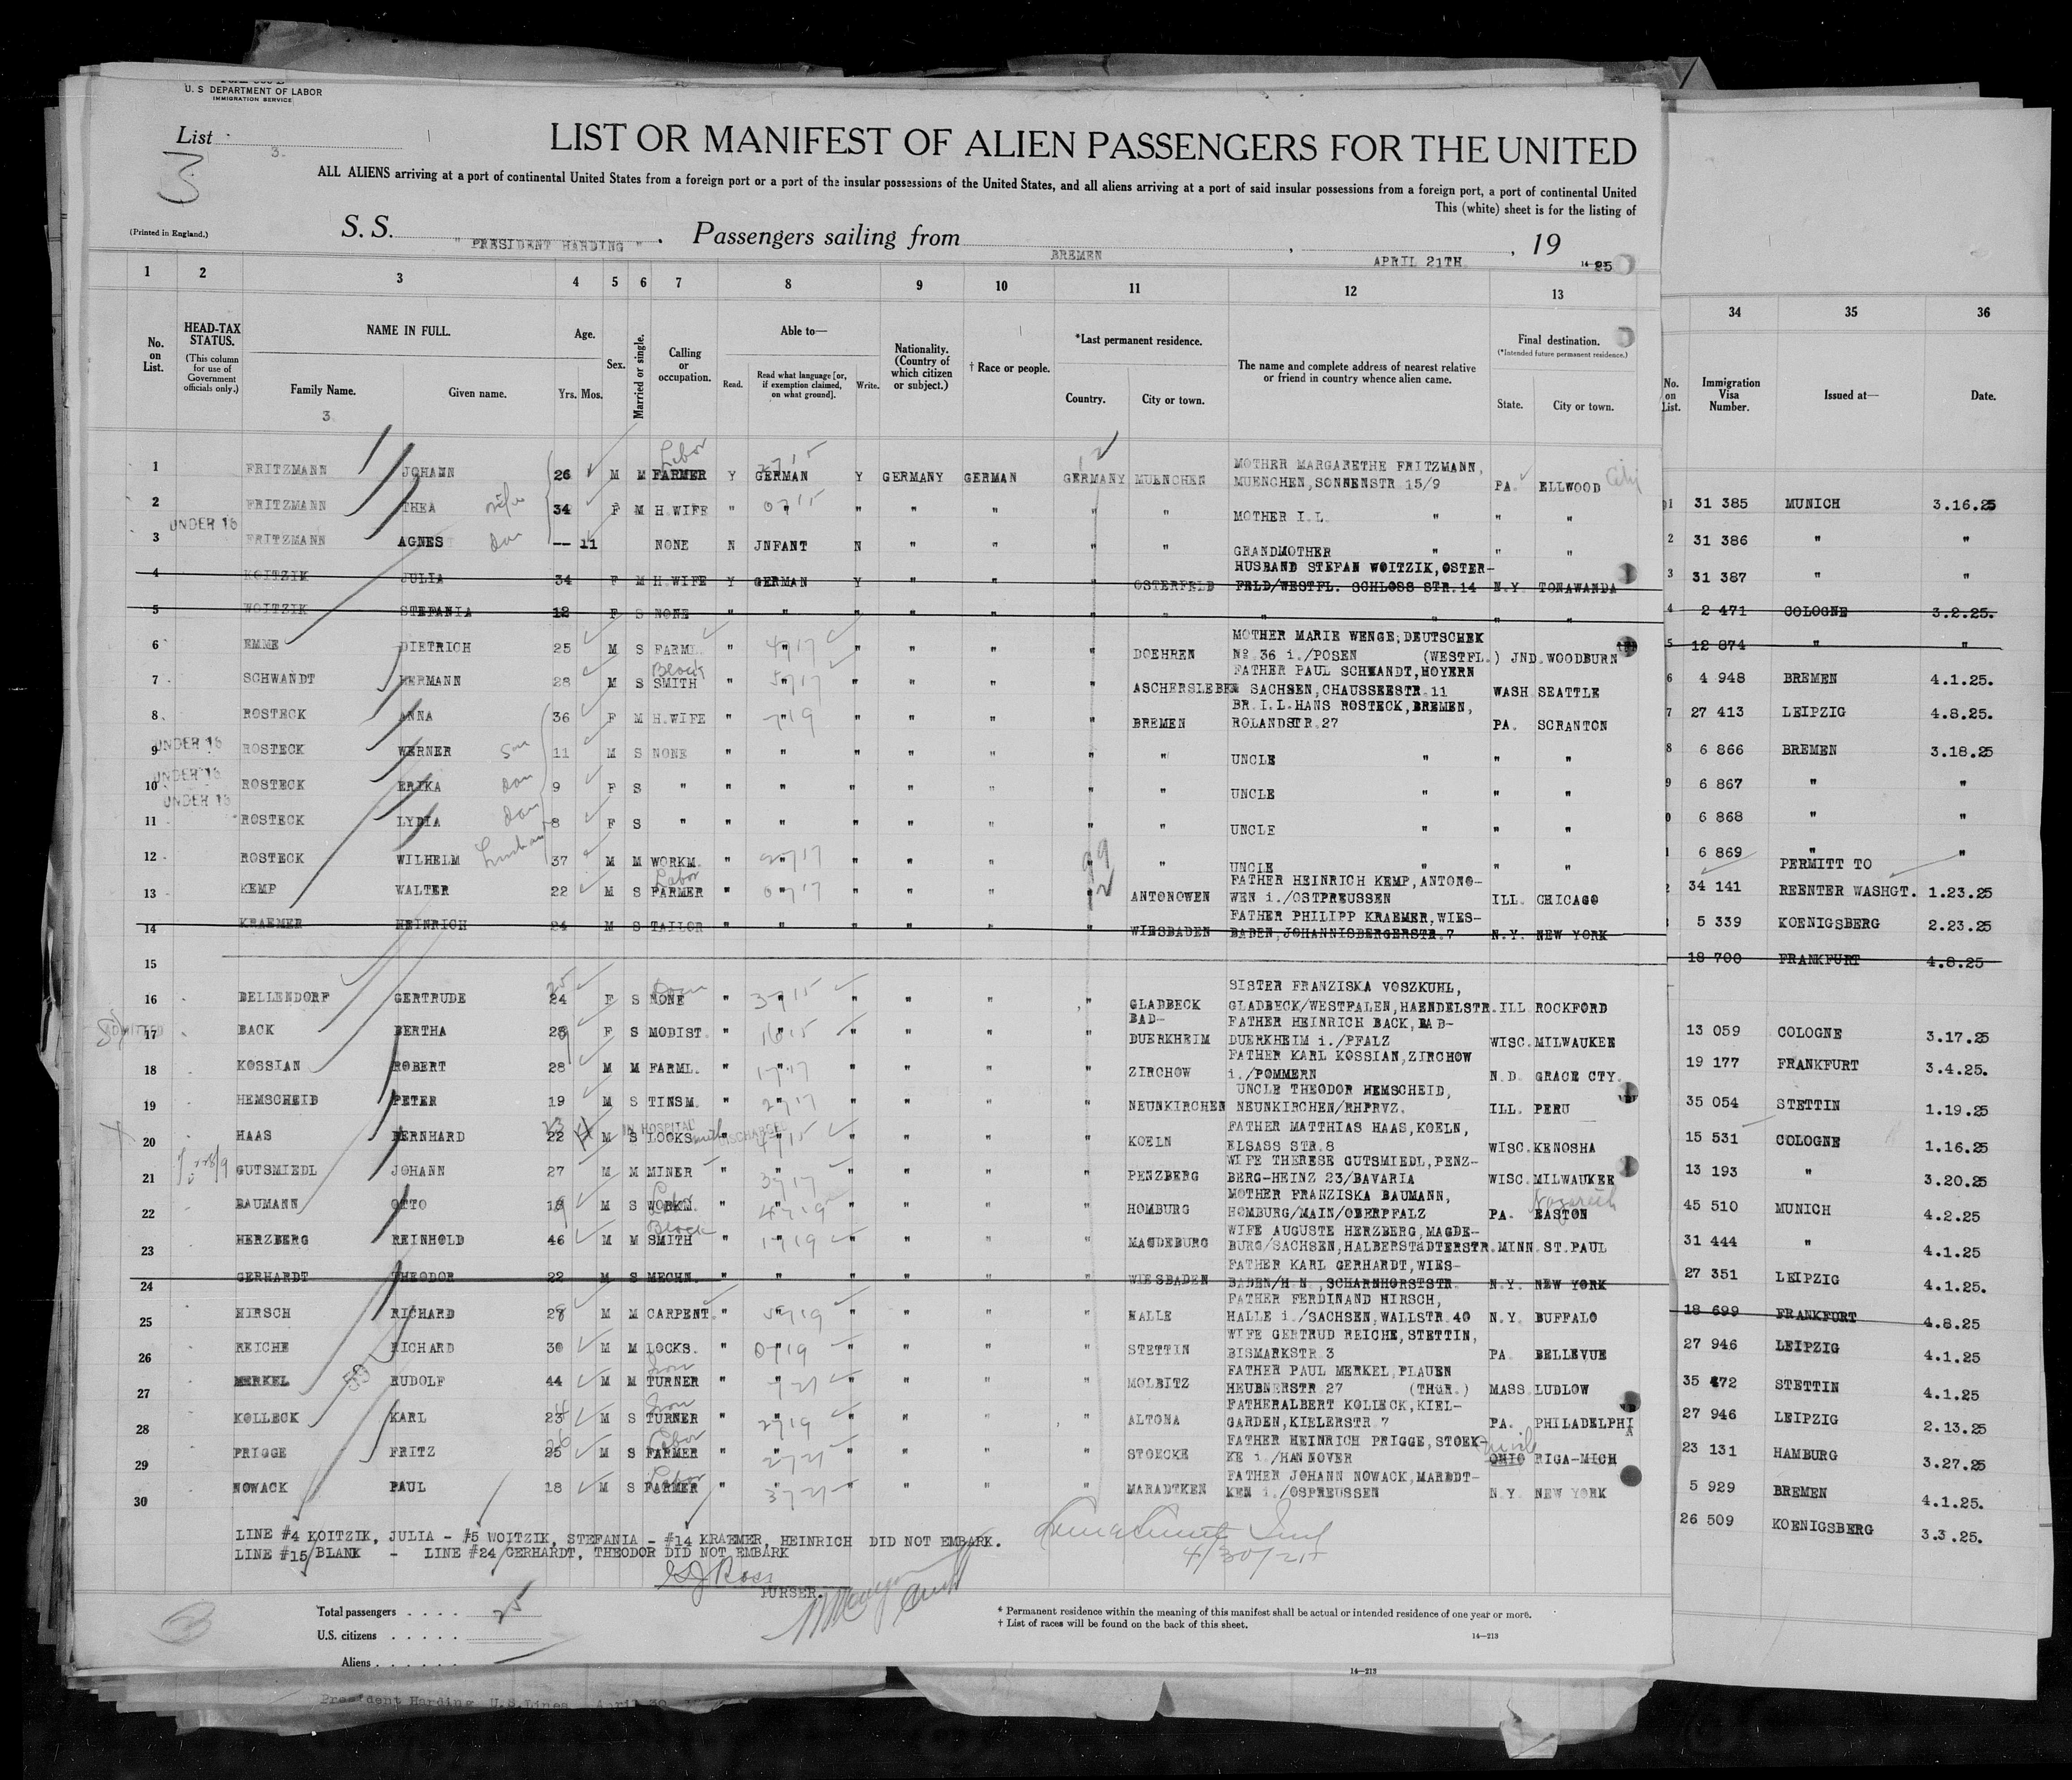 U. S DEPARTMENT OF LABOR
IMMIGRATION SERVICE
List 3.
3
LIST OR MANIFEST OF ALIEN PASSENGERS FOR THE UNITED
ALL ALIENS arriving at a port of continental United States from a foreign port or a port of the insular possessions of the United States, and all aliens arriving at a port of said insular possessions from a foreign port, a port of continental United
This (white) sheet is for the listing of
(Printed in England.)
S. S. " PRESIDENT HARDING ". Passengers sailing from BREMEN, APRIL 21TH, 19 25
1 2 3 4 5 6 7 8 9 10 11 12 13 34 35 36
No. on List.
HEAD-TAX STATUS.
(This column for use of Government officials only.)
NAME IN FULL.
Family Name. Given name.
3
Age.
Yrs. Mos.
Sex.
Married or single.
Calling or occupation.
Able to—
Read. Read what language [or, if exemption claimed, on what ground]. Write.
Nationality. (Country of which citizen or subject.)
† Race or people.
*Last permanent residence.
Country. City or town.
The name and complete address of nearest relative or friend in country whence alien came.
Final destination.
(*Intended future permanent residence.)
State. City or town.
No. on List.
Immigration Visa Number.
Issued at—
Date.
1 FRITZMANN JOHANN 26 M M FARMER Labor Y GERMAN Y GERMANY GERMAN GERMANY MUENCHEN MOTHER MARGARETHE FRITZMANN, MUENCHEN,SONNENSTR 15/9 PA. ELLWOOD City
2 FRITZMANN THEA wife 34 F M H.WIFE " " " " " " " MOTHER I.L. " " "
UNDER 16
3 FRITZMANN AGNES dau -- 11 NONE N JNFANT N " " " " GRANDMOTHER " " "
4 KOITZIK JULIA 34 F M H.WIFE Y GERMAN Y " " " OSTERFELD HUSBAND STEFAN WOITZIK,OSTER-FELD/WESTFL. SCHLOSS STR.14 N.Y. TONAWANDA
5 WOITZIK STEFANIA 12 F S NONE " " " " " " " " " "
6 EMME DIETRICH 25 M S FARML. " " " " " " DOEHREN MOTHER MARIE WENGE,DEUTSCHEK № 36 i./POSEN (WESTFL.) JND. WOODBURN
7 SCHWANDT HERMANN 28 M S SMITH Block " " " " " " ASCHERSLEBEN FATHER PAUL SCHWANDT,HOYERN SACHSEN,CHAUSSESTR.11 WASH SEATTLE
8. ROSTECK ANNA 36 F M H.WIFE " " " " " " BREMEN BR.I.L.HANS ROSTECK,BREMEN, ROLANDSTR.27 PA. SCRANTON
UNDER 16
9 ROSTECK WERNER son 11 M S NONE " " " " " " " UNCLE " " "
UNDER 16
10 ROSTECK ERIKA dau 9 F S " " " " " " " " UNCLE " " "
UNDER 16
11 ROSTECK LYDIA dau 8 F S " " " " " " " " UNCLE " " "
12 ROSTECK WILHELM husband 37 M M WORKM. " " " " " " " UNCLE " " "
13 KEMP WALTER 22 M S FARMER Labor " " " " " " ANTONOWEN FATHER HEINRICH KEMP,ANTONO-WEN i./OSTPREUSSEN ILL. CHICAGO
14 KRAEMER HEINRICH 24 M S TAILOR " " " " " " WIESBADEN FATHER PHILIPP KRAEMER,WIES-BADEN,JOHANNISBERGERSTR.7 N.Y. NEW YORK
15
16 BELLENDORF GERTRUDE 24 25 F S NONE " " " " " " GLADBECK SISTER FRANZISKA VOSZKUHL, GLADBECK/WESTPALEN,HAENDELSTR. ILL ROCKFORD
ADMITTED
17 BACK BERTHA 28 F S MODIST. " " " " " " BAD-DUERKHEIM FATHER HEINRICH BACK,BAD-DUERKHEIM i./PFALZ WISC. MILWAUKEE
18 KOSSIAN ROBERT 28 M M FARML. " " " " " " ZIRCHOW FATHER KARL KOSSIAN,ZIRCHOW i./POMMERN N.D. GRACE CTY.
19 HEMSCHEID PETER 19 M S TINSM. " " " " " " NEUNKIRCHEN UNCLE THEODOR HEMSCHEID, NEUNKIRCHEN/RHPRVZ. ILL. PERU
IN HOSPITAL DISCHARGED
20 HAAS BERNHARD 22 23 M S LOCKS. smith " " " " " " KOELN FATHER MATTHIAS HAAS,KOELN, ELSASS STR.8 WISC. KENOSHA
21 GUTSMIEDL JOHANN 27 M M MINER " " " " " " PENZBERG WIFE THERESE GUTSMIEDL,PENZ-BERG-HEINZ 23/BAVARIA WISC. MILWAUKEE
22 BAUMANN OTTO 18 M S WORKM. Labor " " " " " " HOMBURG MOTHER FRANZISKA BAUMANN, HOMBURG/MAIN/OBERPFALZ PA. EASTON Nazareth
23 HERZBERG REINHOLD 46 M M SMITH Block " " " " " " MAGDEBURG WIFE AUGUSTE HERZBERG,MAGDE-BURG/SACHSEN,HALBERSTäDTERSTR. MINN. ST.PAUL
24 GERHARDT THEODOR 22 M S MECHN. " " " " " " WIESBADEN FATHER KARL GERHARDT,WIES-BADEN/H N.,SCHARNHORSTSTR. N.Y. NEW YORK
25 HIRSCH RICHARD 27 M M CARPENT. " " " " " " HALLE FATHER FERDINAND HIRSCH, HALLE i./SACHSEN,WALLSTR.40 N.Y. BUFFALO
26 REICHE RICHARD 30 M M LOCKS. " " " " " " STETTIN WIFE GERTRUD REICHE,STETTIN, BISMARKSTR.3 PA. BELLEVUE
27 MERKEL RUDOLF 44 M M TURNER Iron " " " " " " MOLBITZ FATHER PAUL MERKEL,PLAUEN HEUBNERSTR.27 (THüR.) MASS. LUDLOW
28 KOLLECK KARL 23 M S TURNER Iron " " " " " " ALTONA FATHERALBERT KOLLECK,KIEL-GARDEN,KIELERSTR.7 PA. PHILADELPHIA
29 PRIGGE FRITZ 25 26 M S FARMER Labor " " " " " " STOECKE FATHER HEINRICH PRIGGE,STOEK-KE i./HANNOVER OHIO RIGA-MICH
30 NOWACK PAUL 18 M S FARMER Labor " " " " " " MARADTKEN FATHER JOHANN NOWACK,MARADT-KEN i./OSPREUSSEN N.Y. NEW YORK
1 31 385 MUNICH 3.16.25
2 31 386 " "
3 31 387 " "
4 2 471 COLOGNE 3.2.25.
5 12 874 " "
6 4 948 BREMEN 4.1.25.
7 27 413 LEIPZIG 4.8.25.
8 6 866 BREMEN 3.18.25
9 6 867 " "
0 6 868 " "
1 6 869 " "
2 34 141 PERMITT TO REENTER WASHGT. 1.23.25
5 339 KOENIGSBERG 2.23.25
18 700 FRANKFURT 4.8.25
13 059 COLOGNE 3.17.25
19 177 FRANKFURT 3.4.25.
35 054 STETTIN 1.19.25
15 531 COLOGNE 1.16.25
13 193 " 3.20.25
45 510 MUNICH 4.2.25
31 444 " 4.1.25
27 351 LEIPZIG 4.1.25.
18 699 FRANKFURT 4.8.25
27 946 LEIPZIG 4.1.25
35 472 STETTIN 4.1.25
27 946 LEIPZIG 2.13.25
23 131 HAMBURG 3.27.25
5 929 BREMEN 4.1.25.
26 509 KOENIGSBERG 3.3.25.
59
LINE #4 KOITZIK, JULIA - #5 WOITZIK, STEFANIA - #14 KRAEMER, HEINRICH DID NOT EMBARK.
LINE #15 BLANK - LINE #24 GERHARDT, THEODOR DID NOT EMBARK
PURSER.
4/30/25
Total passengers . . . . 25
U.S. citizens . . . . .
Aliens . . . . . .
* Permanent residence within the meaning of this manifest shall be actual or intended residence of one year or more.
† List of races will be found on the back of this sheet.
14—213
14—213
President Harding U.S.Lines April 30